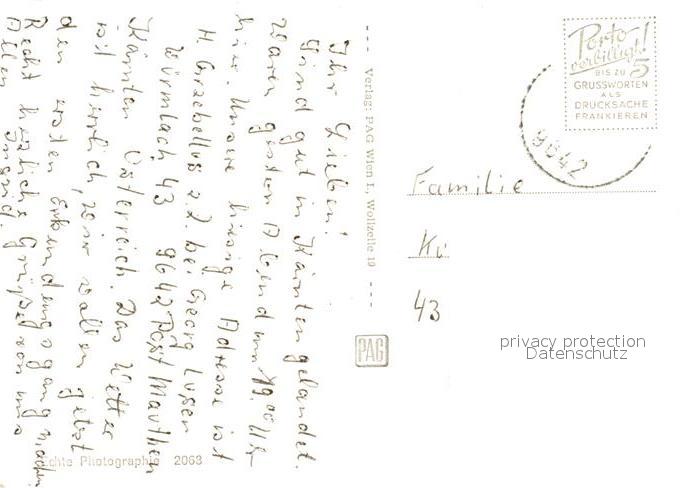 Ihr Lieben!
Sind gut in Kärnten gelandet.
Waren gestern Abend um 19.00 Uhr
hier. Unsere hiesige Adresse ist
H. z.Z. bei Georg
Würmlach 43 9642 Post Mauthen
Kärnten Österreich. Das Wetter
ist herrlich, wir wollen jetzt
den ersten Erkundungsgang machen
Recht herzliche Grüße von uns
Allen
Verlag: PAG Wien I., Wollzeile 19
PAG
Echte Photographie 2063
Porto
verbilligt!
BIS ZU 5
GRUSSWORTEN
ALS
DRUCKSACHE
FRANKIEREN
9642
Familie
43
privacy protection
Datenschutz